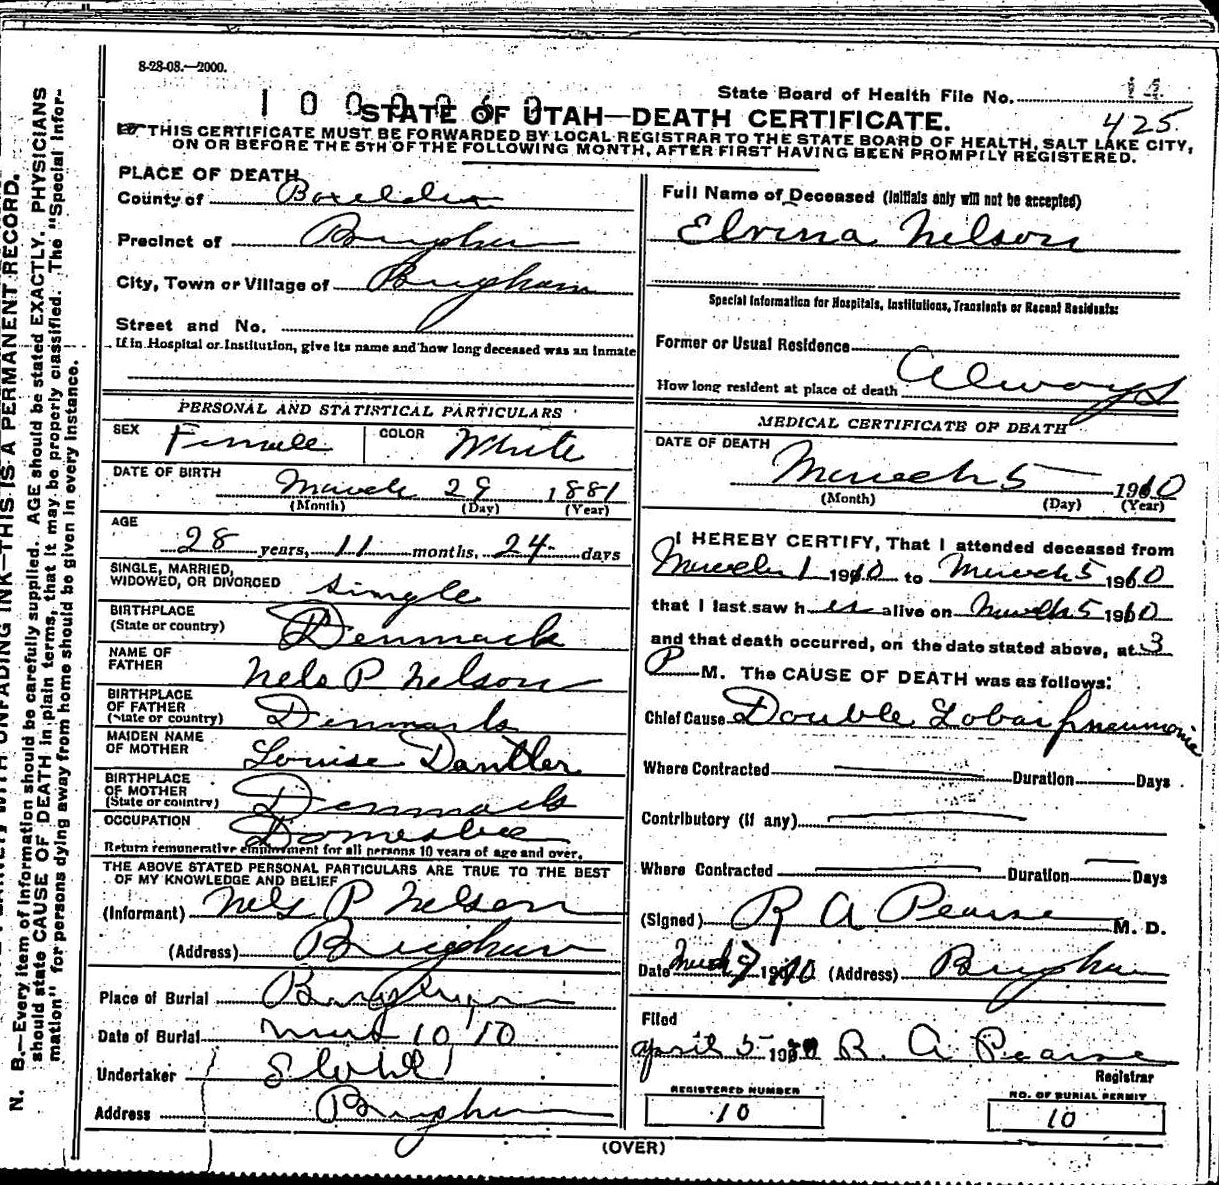 8-28-08.—2000.
State Board of Health File No. 14
1000060
425
STATE OF UTAH—DEATH CERTIFICATE.
THIS CERTIFICATE MUST BE FORWARDED BY LOCAL REGISTRAR TO THE STATE BOARD OF HEALTH, SALT LAKE CITY,
ON OR BEFORE THE 5TH OF THE FOLLOWING MONTH, AFTER FIRST HAVING BEEN PROMPTLY REGISTERED.
N. B.—Every item of information should be carefully supplied. AGE should be stated EXACTLY. PHYSICIANS
should state CAUSE OF DEATH in plain terms, that it may be properly classified. The "Special Infor-
mation" for persons dying away from home should be given in every instance.
UNFADING INK—THIS IS A PERMANENT RECORD.
PLACE OF DEATH
County of Boxelder
Precinct of Brigham
City, Town or Village of Brigham
Street and No.
If in Hospital or Institution, give its name and how long deceased was an inmate
PERSONAL AND STATISTICAL PARTICULARS
SEX Female COLOR White
DATE OF BIRTH March 29 1881
(Month) (Day) (Year)
AGE
28 years, 11 months, 24 days
SINGLE, MARRIED,
WIDOWED, OR DIVORCED single
BIRTHPLACE
(State or country) Denmark
NAME OF
FATHER Nels P Nelson
BIRTHPLACE
OF FATHER
(State or country) Denmark
MAIDEN NAME
OF MOTHER Louise Dantler
BIRTHPLACE
OF MOTHER
(State or country) Denmark
OCCUPATION Domestic
Return remunerative employment for all persons 10 years of age and over.
THE ABOVE STATED PERSONAL PARTICULARS ARE TRUE TO THE BEST
OF MY KNOWLEDGE AND BELIEF
(Informant) Nels P Nelson
(Address) Brigham
Place of Burial Brigham
Date of Burial Mar 10 '10
Undertaker
Address Brigham
Full Name of Deceased (Initials only will not be accepted)
Elvina Nelson
Special Information for Hospitals, Institutions, Transients or Recent Residents:
Former or Usual Residence
How long resident at place of death Always
MEDICAL CERTIFICATE OF DEATH
DATE OF DEATH
March 5 1910
(Month) (Day) (Year)
I HEREBY CERTIFY, That I attended deceased from
March 1 1910 to March 5 1910
that I last saw her alive on March 5 1910
and that death occurred, on the date stated above, at 3
P M. The CAUSE OF DEATH was as follows:
Chief Cause Double Lobar pneumonia
Where Contracted Duration Days
Contributory (if any)
Where Contracted Duration Days
(Signed) R A Pearse M. D.
Date March 1910 (Address) Brigham
Filed
April 5 1910 R. A Pearse
Registrar
REGISTERED NUMBER
10
NO. OF BURIAL PERMIT
10
(OVER)